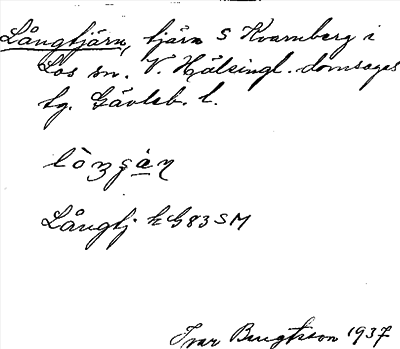 Långtjärn, tjärn S Kvarnberg i
Los sn. V. Hälsingl. domsagas
tg. Gävleb. l.
Långtj. k G83 SM
Ivar Bengtsson 1937